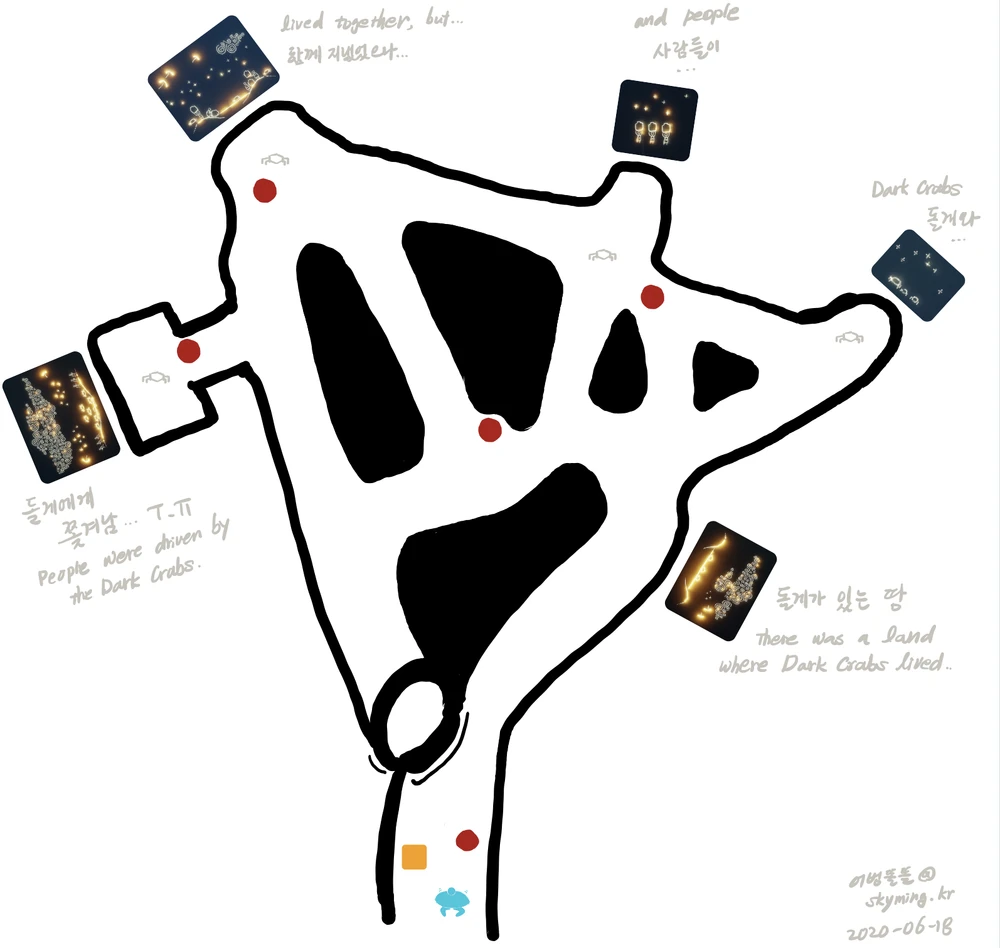 lived together, but...
함께 지냈으나...
and people
사람들이
...
Dark Crabs
돌게와
...
돌게에게
쫓겨남... T_π
People were driven by
the Dark Crabs.
돌게가 있는 땅
There was a land
where Dark Crabs lived..
어범뜰틀
skyming.kr
2020-06-18